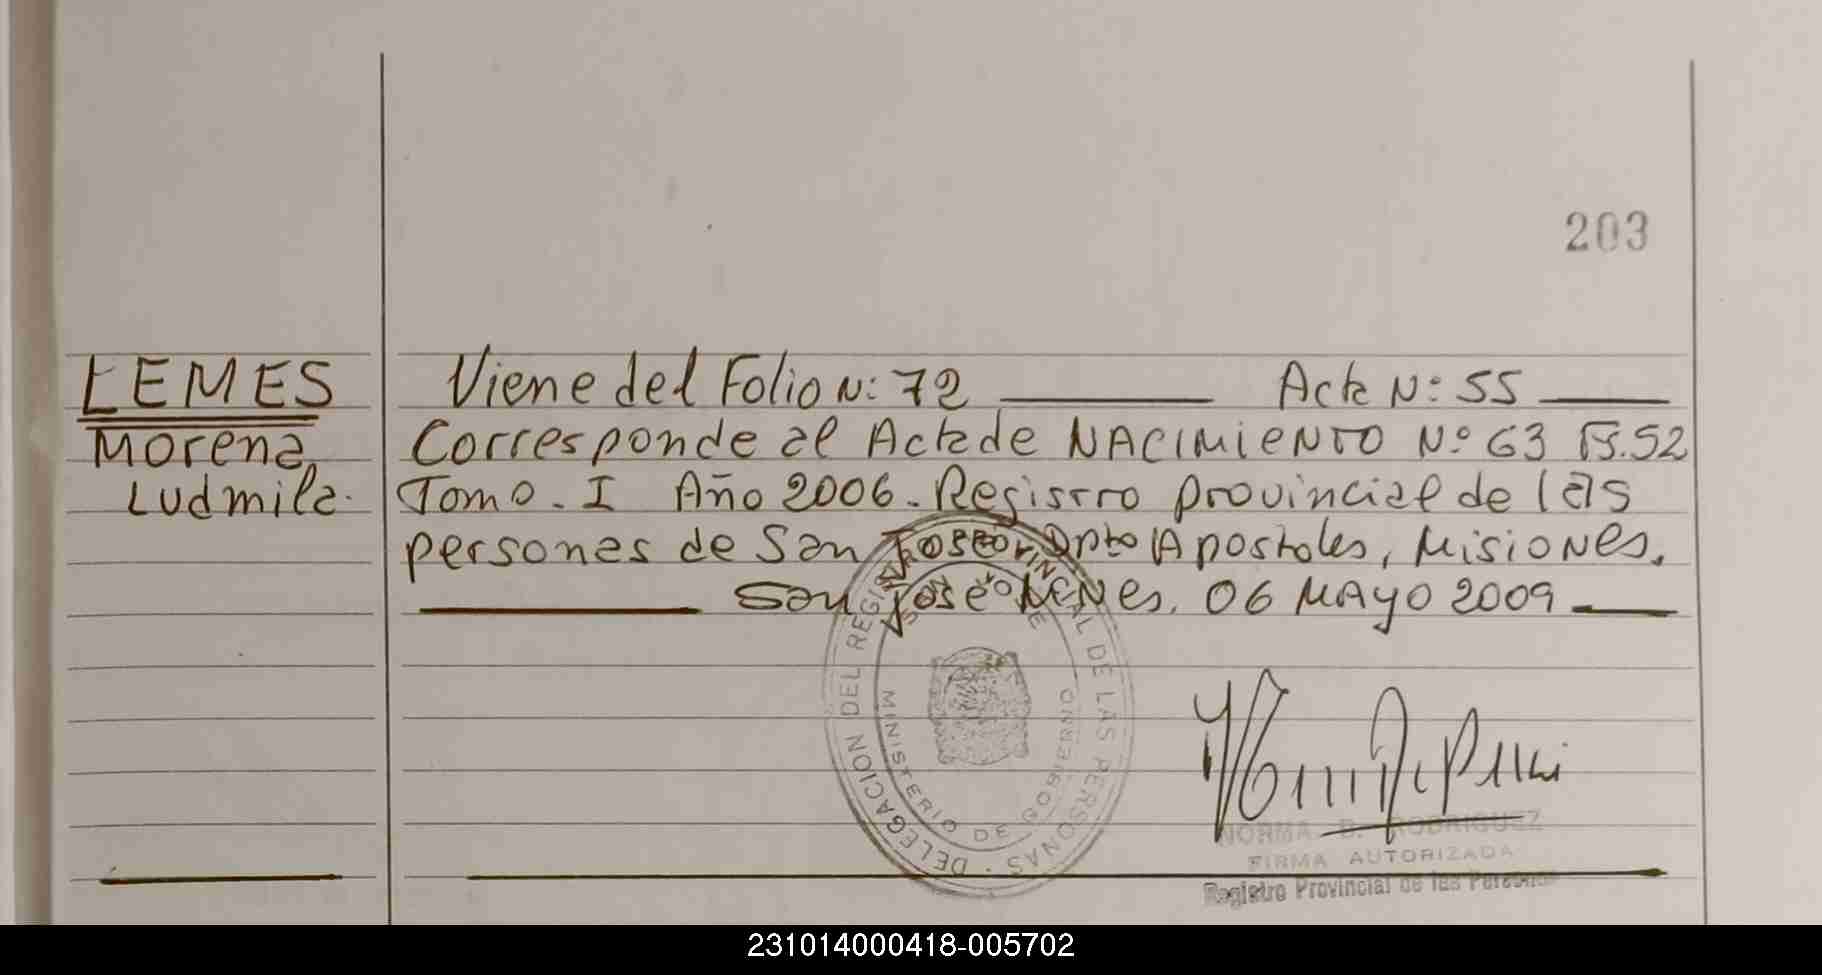 203
LEMES
Morena
Ludmila.
Viene del Folio N: 72 Acta N: 55
Corresponde al Acta de NACIMIENTO Nº 63 Fs.52
Tomo - I Año 2006 - Registro provincial de las
personas de San José, Dpto Apostoles, Misiones.
San José MNes, 06 MAYO 2009
DELEGACION DEL REGISTRO PROVINCIAL DE LAS PERSONAS
SAN JOSE
MINISTERIO DE GOBIERNO
NORMA B. RODRIGUEZ
FIRMA AUTORIZADA
Registro Provincial de las Personas
231014000418-005702